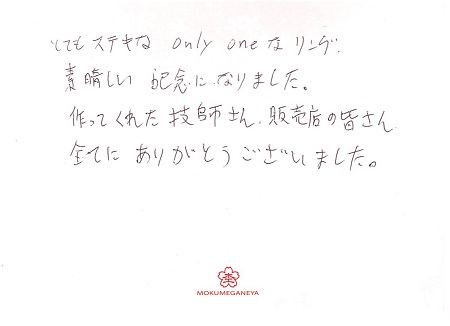 とてもステキな only one なリング、
素晴しい 記念になりました。
作ってくれた技師さん、販売店の皆さん
全てに ありがとうございました。
MOKUMEGANEYA